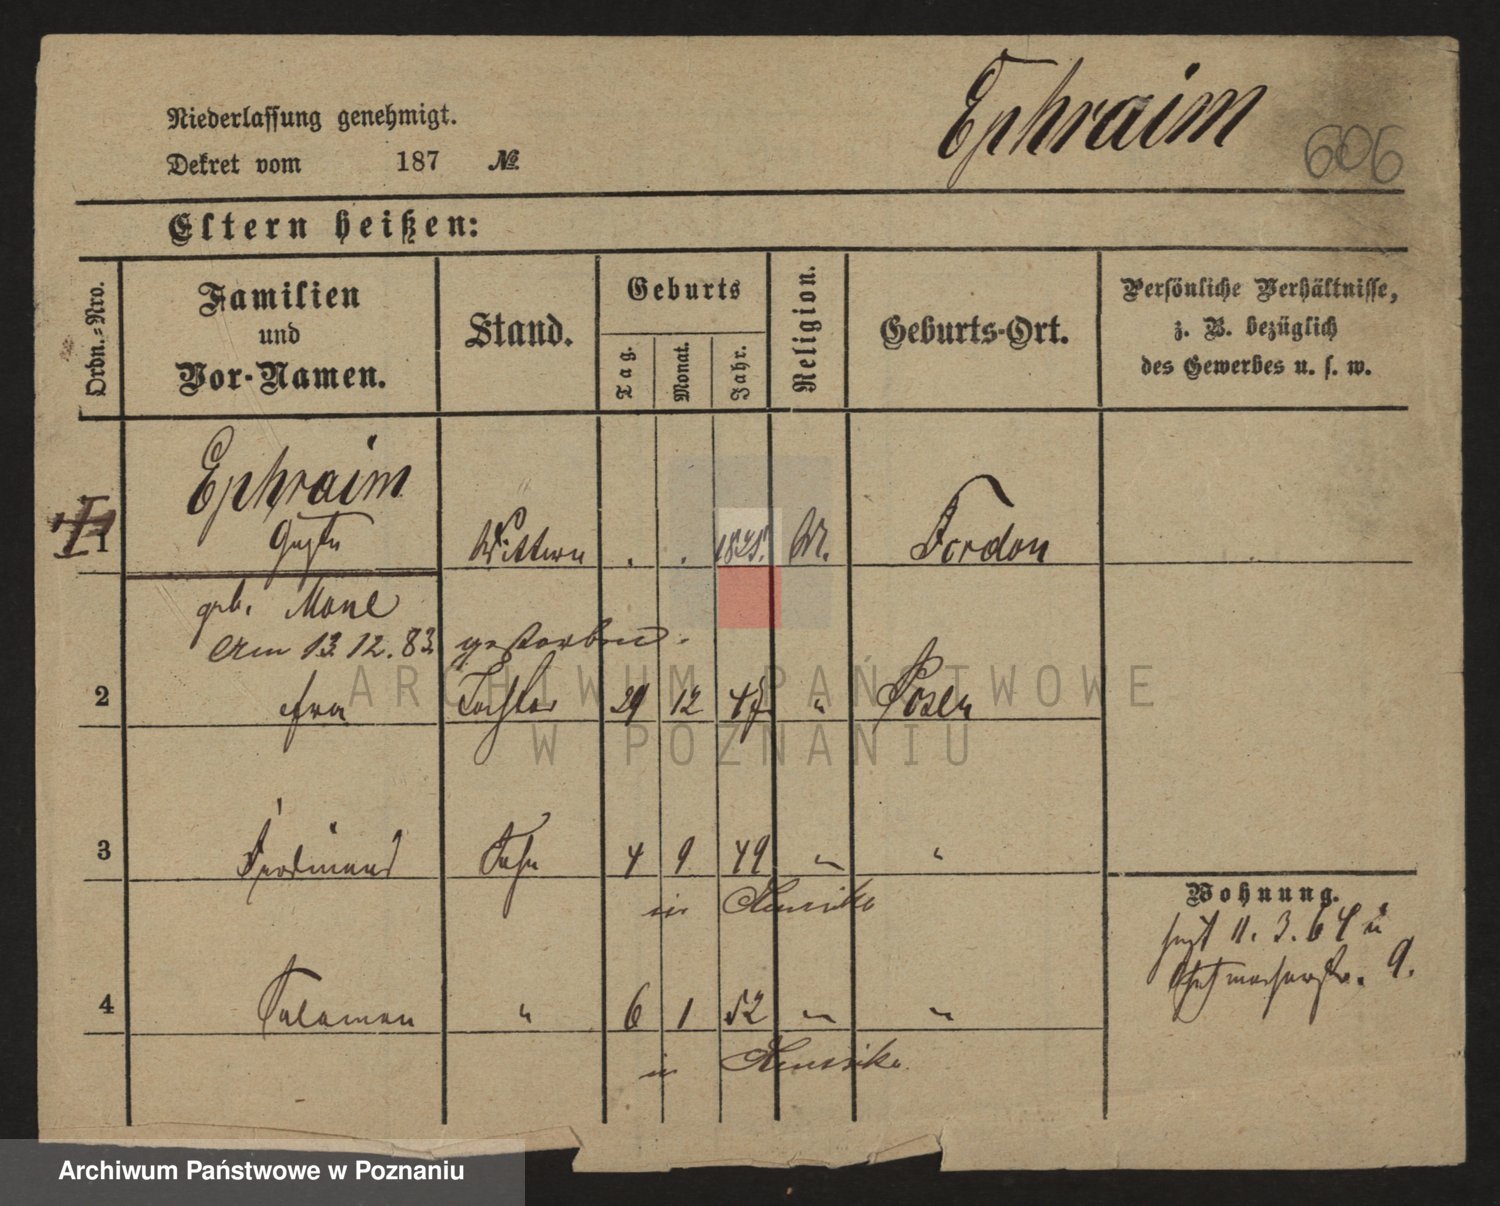 Niederlassung genehmigt.
Dekret vom 187 №
Ephraim
606
Eltern heißen:
Ordn.-Nro.
Familien und Vor-Namen.
Stand.
Geburts
Tag. Monat. Jahr.
Religion.
Geburts-Ort.
Persönliche Verhältnisse,
z. B. bezüglich
des Gewerbes u. s. w.
Ephraim
1 Wittwe . . M. Fordon
geb.
Am 13.12.83 gestorben.
2 Tochter 29 12 " Posen
3 Ferdinand Sohn 4 9 49 " "
in Amerika
Wohnung.
4 Salomon " 6 1 52 " "
in Amerika
9.
ARCHIWUM PAŃSTWOWE
W POZNANIU
Archiwum Państwowe w Poznaniu